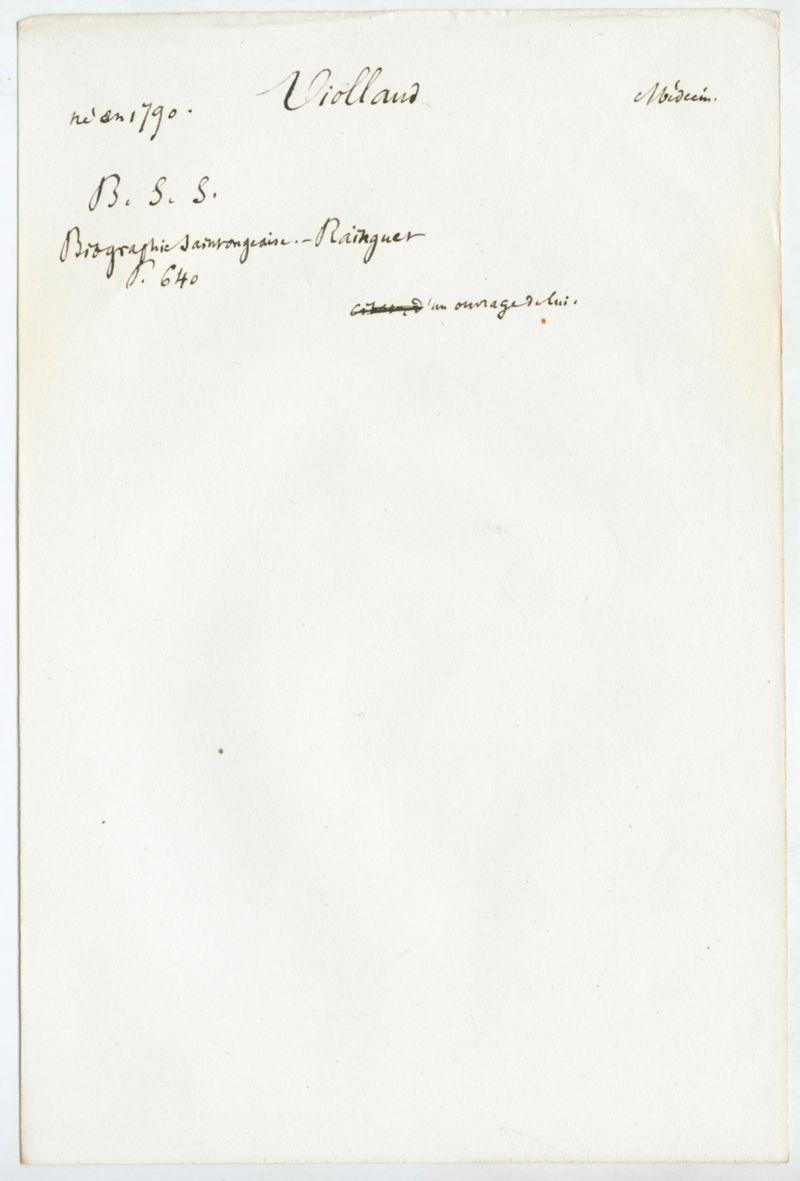 Viollaud
Médecin.
né en 1790.
B. S. S.
Biographie Saintongeaise. - Rainguet
P. 640
d'un ouvrage de lui.